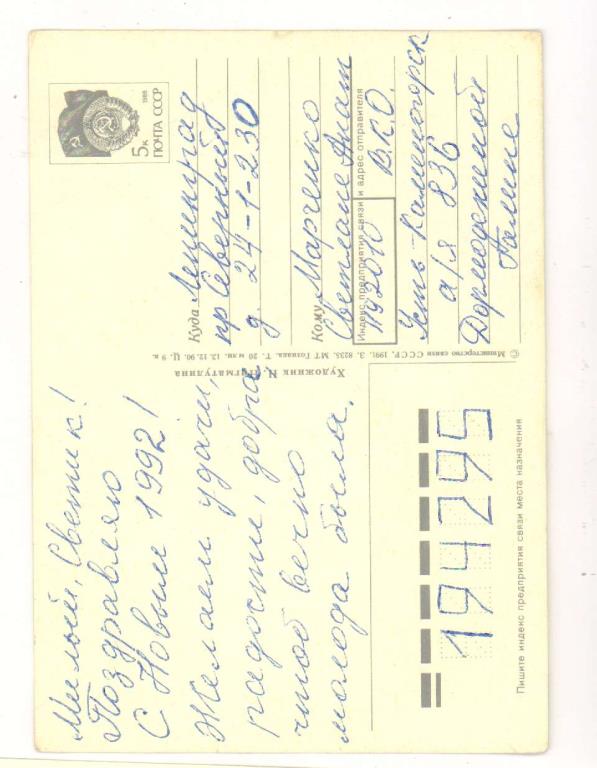 Милый, Светик!
Поздравляю
С Новым 1992!
Желаем удачи,
радости, добра
чтоб вечно
молода была.
5к
1988
ПОЧТА СССР
Куда Ленинград
пр Северный
д. 24-1-230
Кому Марченко
Светлане Анат
Индекс предприятия связи и адрес отправителя
492010 В.К.О.
Усть-Каменогорск
а/я 836
Галине
© Министерство связи СССР, 1991. З. 8233. МТ Гознака. Т. 20 млн. 13.12.90. Ц. 9 к.
Художник Н. Нигматулина
194295
Пишите индекс предприятия связи места назначения